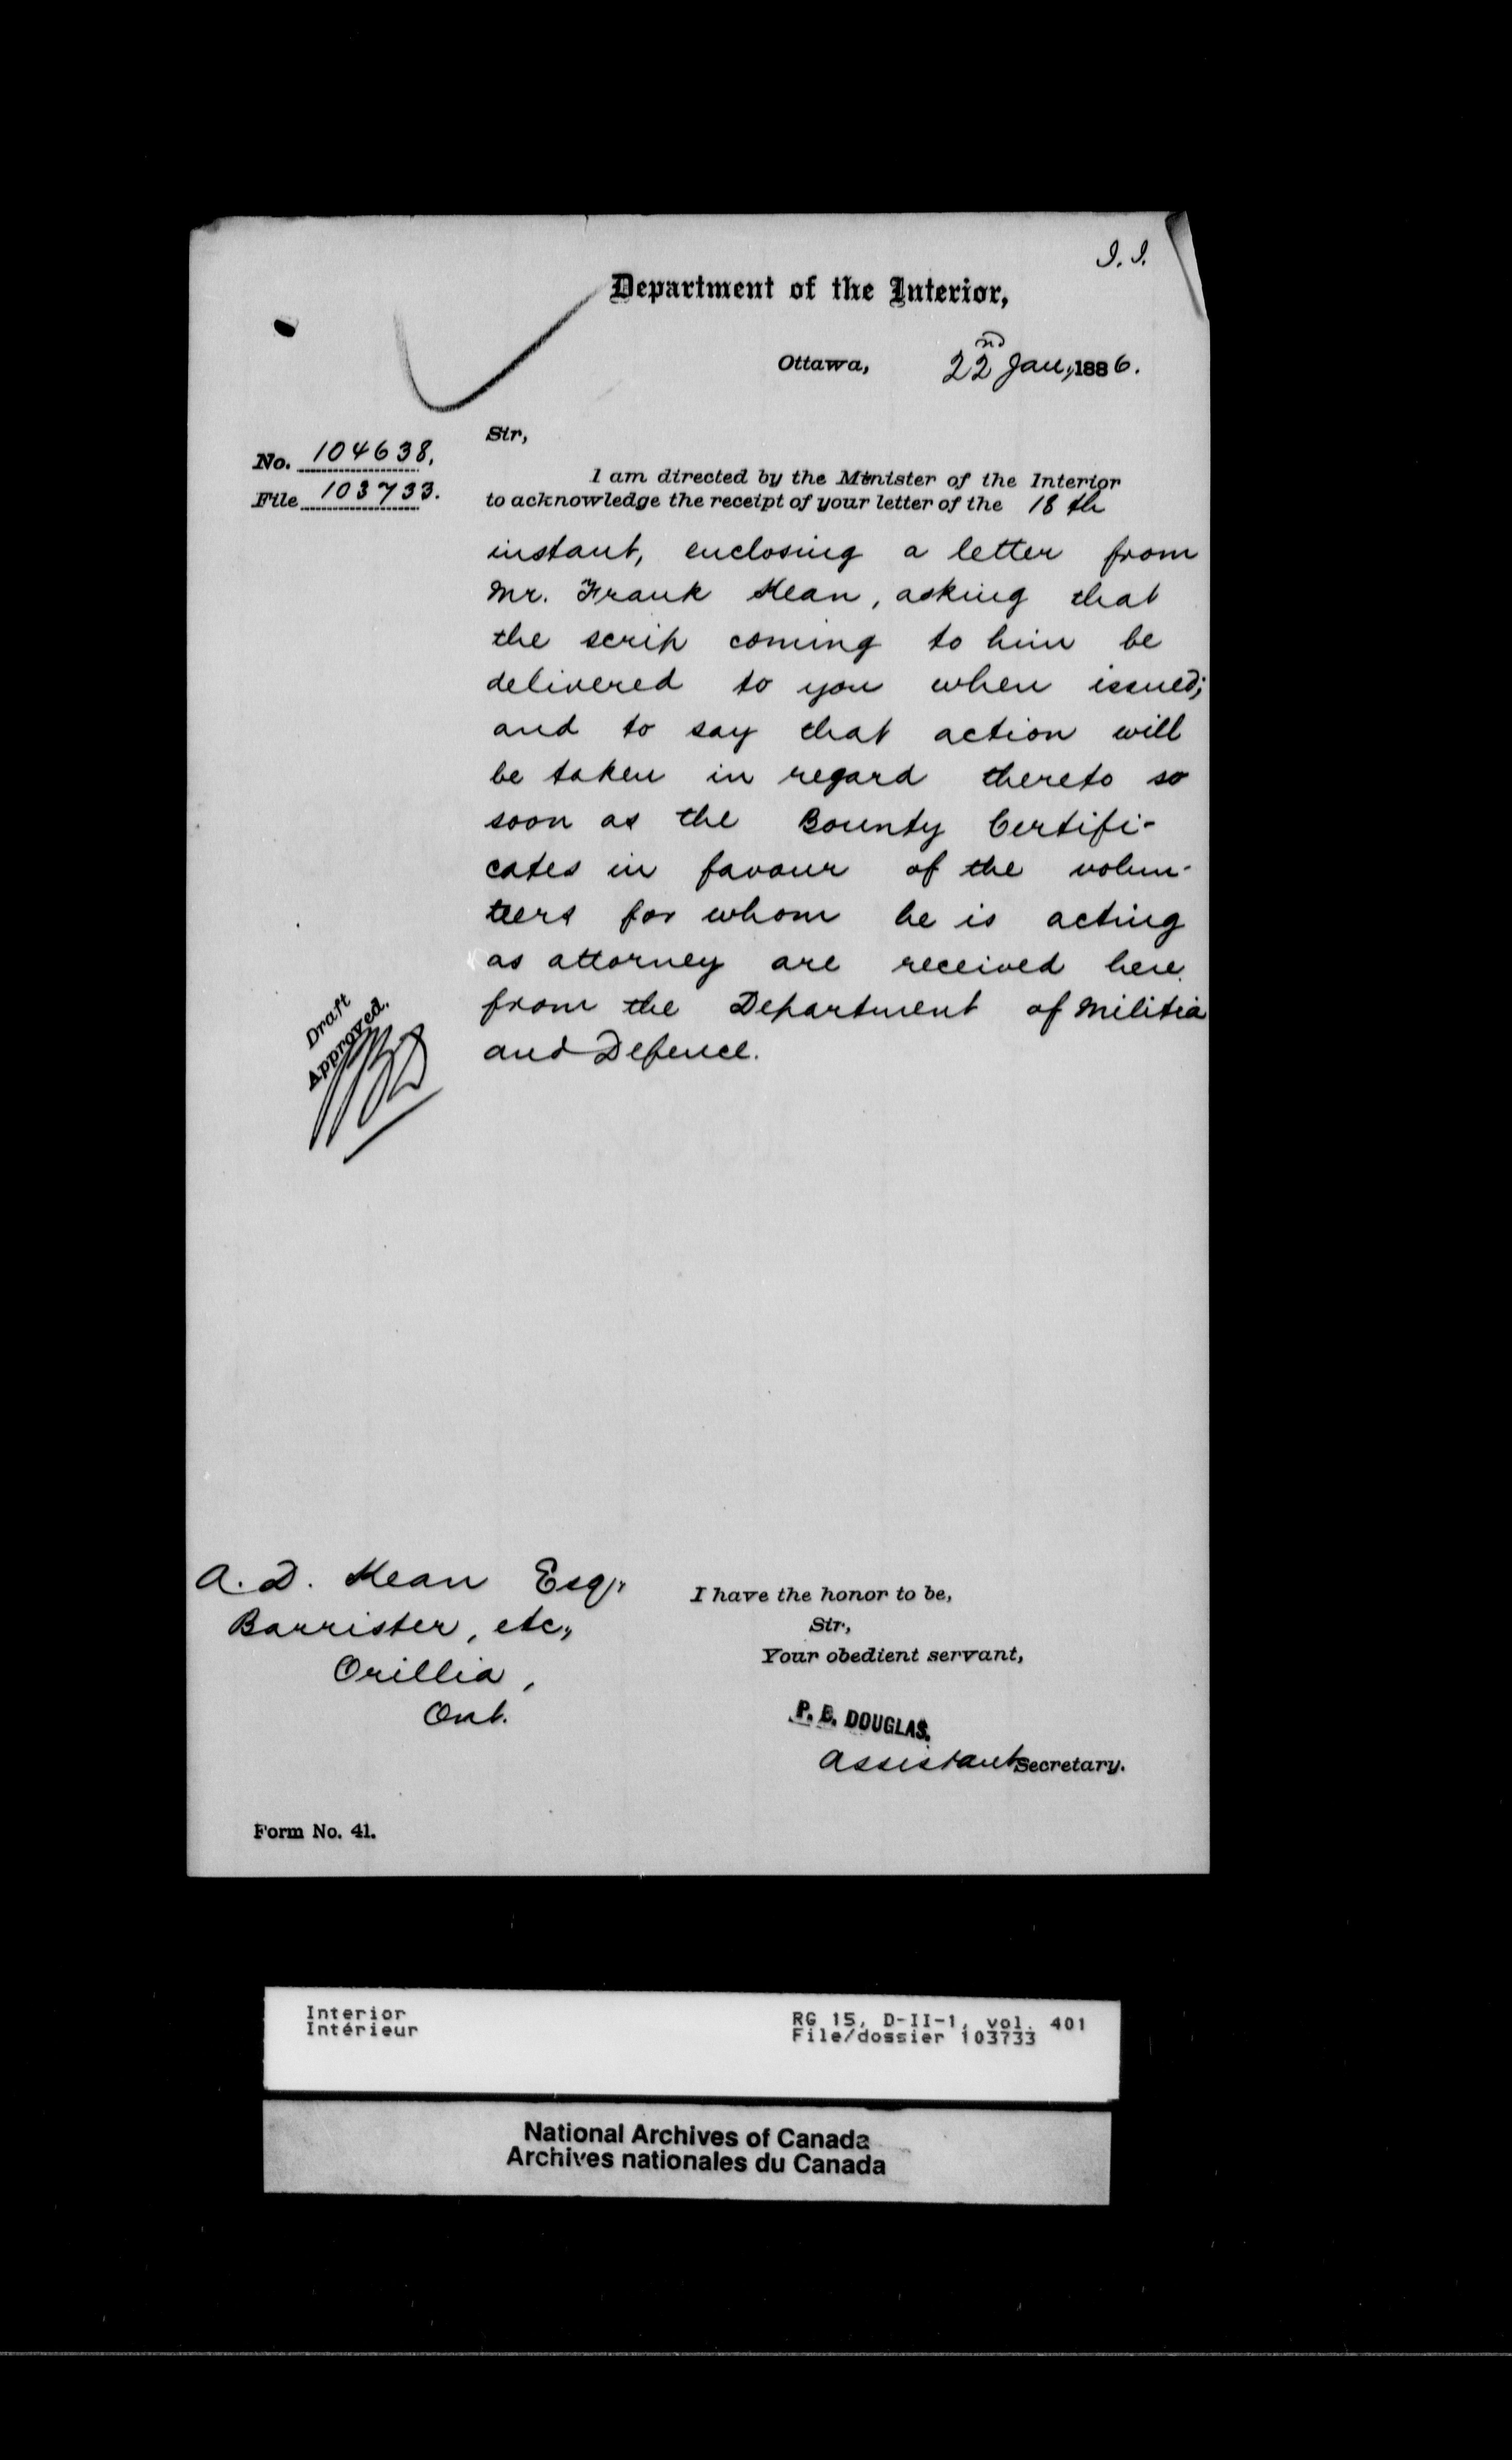 I. I.
Department of the Interior,
Ottawa, 22nd Jan, 1886.
No. 104638.
File 103733.
Sir,
I am directed by the Minister of the Interior
to acknowledge the receipt of your letter of the 18th
instant, enclosing a letter from
Mr. Frank Kean, asking that
the scrip coming to him be
delivered to you when issued;
and to say that action will
be taken in regard thereto so
soon as the Bounty Certifi-
cates in favour of the volun-
teers for whom he is acting
as attorney are received here
from the Department of Militia
and Defence.
Draft
Approved.
A. D. Kean Esq.
Barrister, etc.,
Orillia,
Ont.
I have the honor to be,
Sir,
Your obedient servant,
P. B. DOUGLAS.
Assistant Secretary.
Form No. 41.
Interior
Intérieur
RG 15, D-II-1, vol. 401
File/dossier 103733
National Archives of Canada
Archives nationales du Canada